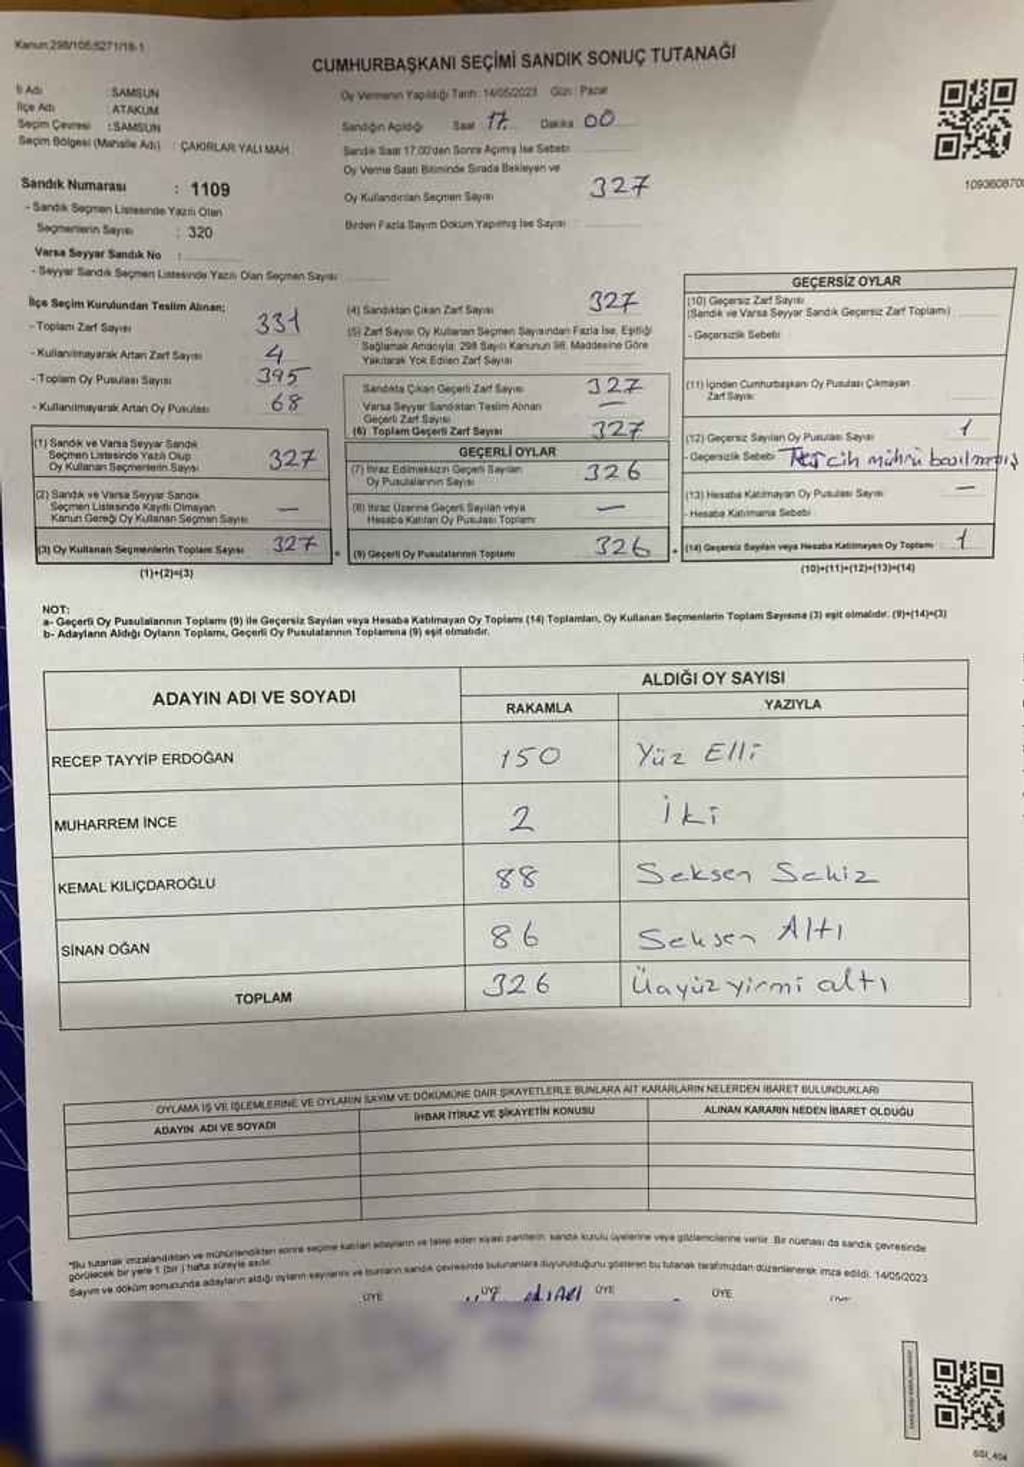 Kanun:298/105;5271/18-1
CUMHURBAŞKANI SEÇİMİ SANDIK SONUÇ TUTANAĞI
İl Adı : SAMSUN
İlçe Adı : ATAKUM
Seçim Çevresi : SAMSUN
Seçim Bölgesi (Mahalle Adı) : ÇAKIRLAR YALI MAH.
Oy Vermenin Yapıldığı Tarih: 14/05/2023 Gün: Pazar
Sandığın Açıldığı Saat 17 Dakika 00
Sandık Saat 17:00'den Sonra Açımış İse Sebebi
Oy Verme Saati Bitiminde Sırada Bekleyen ve
Oy Kullandırılan Seçmen Sayısı 327
Birden Fazla Sayım Döküm Yapılmış İse Sayısı
Sandık Numarası : 1109
- Sandık Seçmen Listesinde Yazılı Olan
Seçmenlerin Sayısı : 320
Varsa Seyyar Sandık No :
- Seyyar Sandık Seçmen Listesinde Yazılı Olan Seçmen Sayısı
İlçe Seçim Kurulundan Teslim Alınan:
- Toplam Zarf Sayısı 331
- Kullanılmayarak Artan Zarf Sayısı 4
- Toplam Oy Pusulası Sayısı 395
- Kullanılmayarak Artan Oy Pusulası 68
(1) Sandık ve Varsa Seyyar Sandık
Seçmen Listesinde Yazılı Olup
Oy Kullanan Seçmenlerin Sayısı 327
(2) Sandık ve Varsa Seyyar Sandık
Seçmen Listesinde Kayıtlı Olmayan
Kanun Gereği Oy Kullanan Seçmen Sayısı —
(3) Oy Kullanan Seçmenlerin Toplam Sayısı 327
(1)+(2)=(3)
(4) Sandıktan Çıkan Zarf Sayısı 327
(5) Zarf Sayısı Oy Kullanan Seçmen Sayısından Fazla İse, Eşitliği
Sağlamak Amacıyla; 298 Sayılı Kanunun 98. Maddesine Göre
Yakılarak Yok Edilen Zarf Sayısı
Sandıkta Çıkan Geçerli Zarf Sayısı 327
Varsa Seyyar Sandıktan Teslim Alınan
Geçerli Zarf Sayısı —
(6) Toplam Geçerli Zarf Sayısı 327
GEÇERLİ OYLAR
(7) İtiraz Edilmeksizin Geçerli Sayılan
Oy Pusulalarının Sayısı 326
(8) İtiraz Üzerine Geçerli Sayılan veya
Hesaba Katılan Oy Pusulası Toplamı —
(9) Geçerli Oy Pusulalarının Toplamı 326
GEÇERSİZ OYLAR
(10) Geçersiz Zarf Sayısı
(Sandık ve Varsa Seyyar Sandık Geçersiz Zarf Toplamı)
- Geçersizlik Sebebi
(11) İçinden Cumhurbaşkanı Oy Pusulası Çıkmayan
Zarf Sayısı
(12) Geçersiz Sayılan Oy Pusulası Sayısı 1
- Geçersizlik Sebebi Tercih mührü basılmamış
(13) Hesaba Katılmayan Oy Pusulası Sayısı —
- Hesaba Katılmama Sebebi
(14) Geçersiz Sayılan veya Hesaba Katılmayan Oy Toplamı 1
(10)+(11)+(12)+(13)=(14)
NOT:
a- Geçerli Oy Pusulalarının Toplamı (9) ile Geçersiz Sayılan veya Hesaba Katılmayan Oy Toplamı (14) Toplamları, Oy Kullanan Seçmenlerin Toplam Sayısına (3) eşit olmalıdır. (9)+(14)=(3)
b- Adayların Aldığı Oyların Toplamı, Geçerli Oy Pusulalarının Toplamına (9) eşit olmalıdır.
ADAYIN ADI VE SOYADI ALDIĞI OY SAYISI
RAKAMLA YAZIYLA
RECEP TAYYİP ERDOĞAN 150 Yüz Elli
MUHARREM İNCE 2 İki
KEMAL KILIÇDAROĞLU 88 Seksen Sekiz
SİNAN OĞAN 86 Seksen Altı
TOPLAM 326 Üçyüz yirmi altı
OYLAMA İŞ VE İŞLEMLERİNE VE OYLARIN SAYIM VE DÖKÜMÜNE DAİR ŞİKAYETLERLE BUNLARA AİT KARARLARIN NELERDEN İBARET BULUNDUKLARI
ADAYIN ADI VE SOYADI İHBAR İTİRAZ VE ŞİKAYETİN KONUSU ALINAN KARARIN NEDEN İBARET OLDUĞU
"Bu tutanak imzalandıktan ve mühürlendikten sonra seçime katılan adayların ve talep eden siyasi partilerin, sandık kurulu üyelerine veya gözlemcilerine verilir. Bir nüshası da sandık çevresinde
görülecek bir yere 1 (bir) hafta süreyle asılır.
Sayım ve döküm sonucunda adayların aldığı oyların sayılarını ve bunların sandık çevresinde bulunanlara duyurulduğunu gösteren bu tutanak tarafımızdan düzenlenerek imza edildi. 14/05/2023
ÜYE ÜYE ÜYE ÜYE